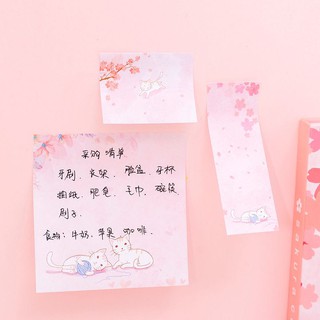 采购清单
牙刷、衣架、脸盆、牙杯
抽纸、肥皂、毛巾、碗筷
刷子.
食物：牛奶、苹果、咖啡.